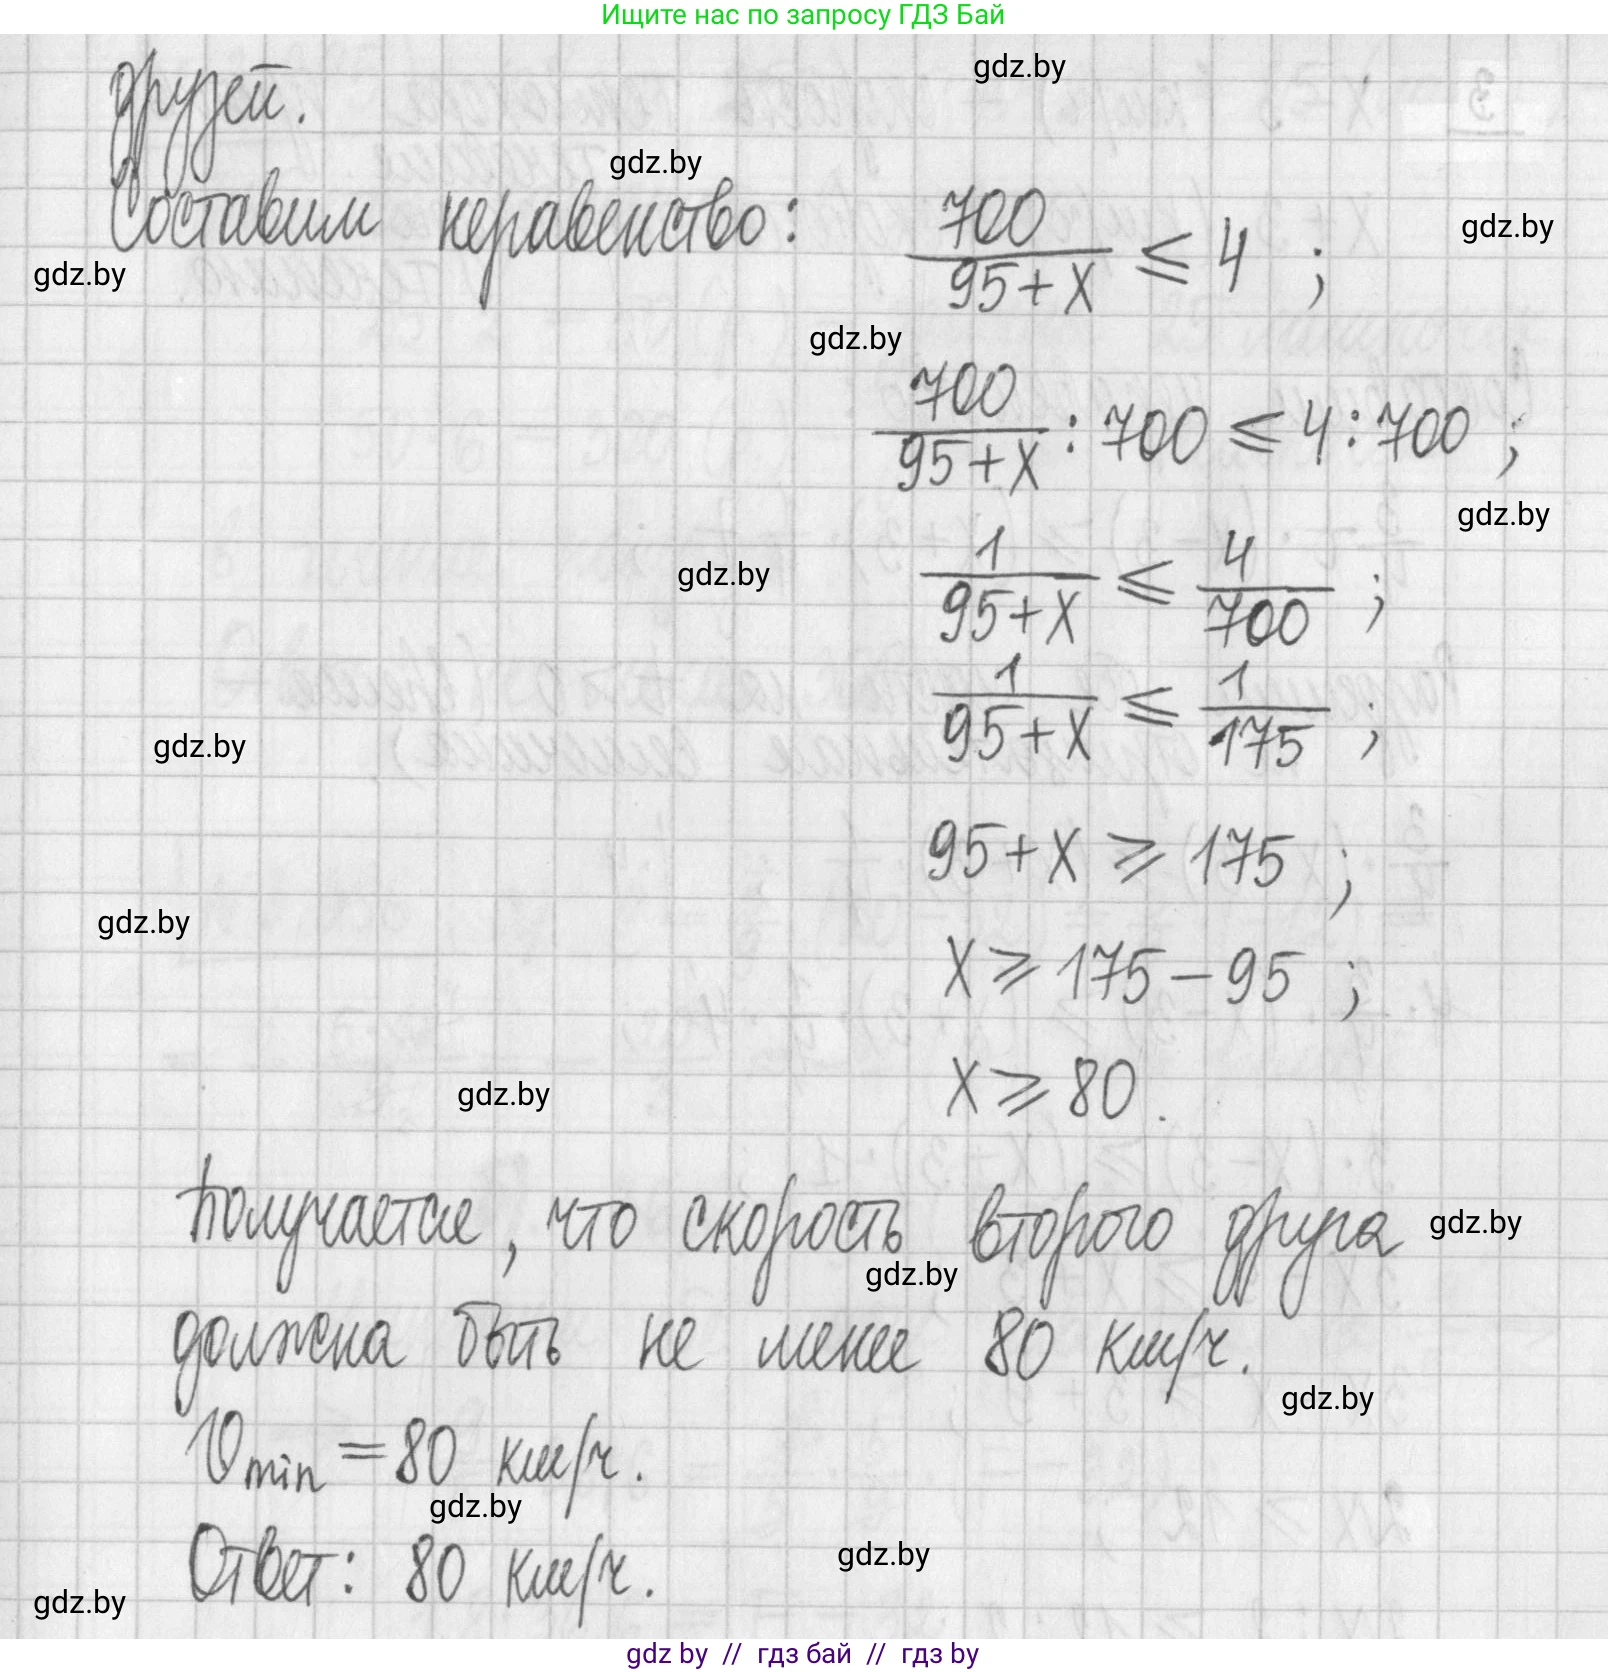 Ищите нас по запросу ГДЗ Бай
gdz.by
друзей.
gdz.by
Составим неравенство: 700/(95+x) ⩽ 4 ;
gdz.by
gdz.by
gdz.by
700/(95+x) : 700 ⩽ 4 : 700 ;
gdz.by
1/(95+x) ⩽ 4/700 ;
gdz.by
1/(95+x) ⩽ 1/175 ;
gdz.by
95+x ⩾ 175 ;
gdz.by
x ⩾ 175 - 95 ;
x ⩾ 80 .
gdz.by
Получается, что скорость второго друга
gdz.by
gdz.by
должна быть не менее 80 км/ч.
gdz.by
Vmin = 80 км/ч.
gdz.by
Ответ: 80 км/ч.
gdz.by
gdz.by
gdz by // гдз бай // gdz by